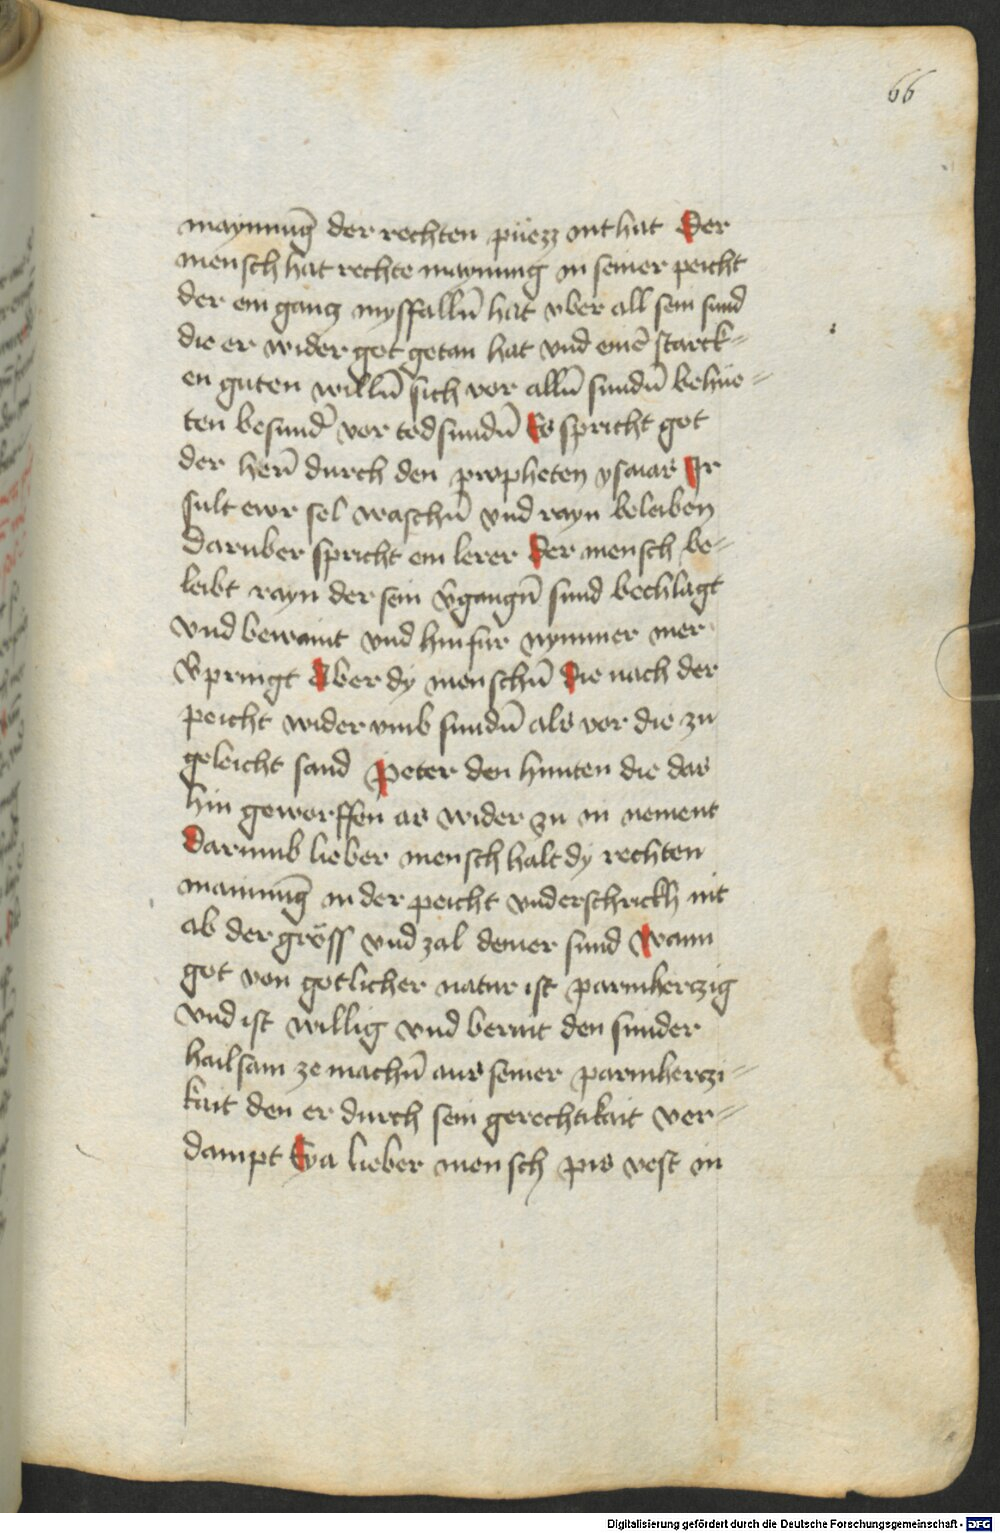 66
maynnūg der rechten püezz mt hat Der
mensch hat rechte maynung in seiner peicht
der ein gancz myssfallñ hat vber all sein sund
die er wider got getan hat vnd einē starck=
en guten willñ sich vor allñ sundñ behüe=
ten besund̄ vor todsundñ Es spricht got
der herr̄ durch den propheten ysaias Ir
sult ewr sel waschñ vnd rayn beleiben
daruber spricht ein lerer Der mensch be=
leibt rayn der sein v̄gangñ sund bechlagt
vnd bewaint vnd hinfür nymmer mer
v̄pringt Aber dy menschñ die nach der
peicht wider vmb sundñ als vor die zu
geleicht sand Peter den hunten die das
hin geworffen as wider zu in nement
Darumb lieber mensch halt dy rechten
mainūg in der peicht vnd erschrickh nit
ab der gröss vnd zal deiner sund Wann
got von gotlicher natur ist parmherczig
vnd ist willig vnd berait den sunder
hailsam ze machñ aus seiner parmherczi=
kait den er durch sein gerechtikait ver=
dampt Eya lieber mensch pis vest in
Digitalisierung gefördert durch die Deutsche Forschungsgemeinschaft - DFG